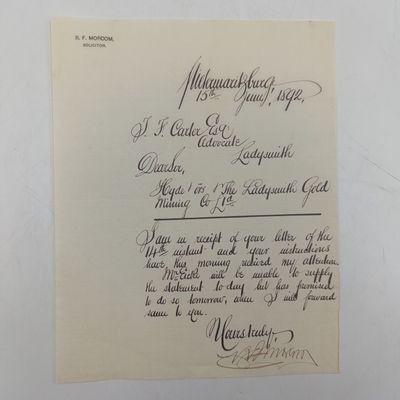 R. F. MORCOM,
SOLICITOR.
Pietermaritzburg
15th June, 1892.
T. F. Carter Esq
Advocate
Ladysmith
Dear Sir,
Hyde & ors vs The Ladysmith Gold
Mining Co Ltd
I am in receipt of your letter of the
14th instant and your instructions
have this morning received my attention.
Mr will be unable to supply
the statement to-day but has promised
to do so tomorrow, when I will forward
same to you.
Yours truly,